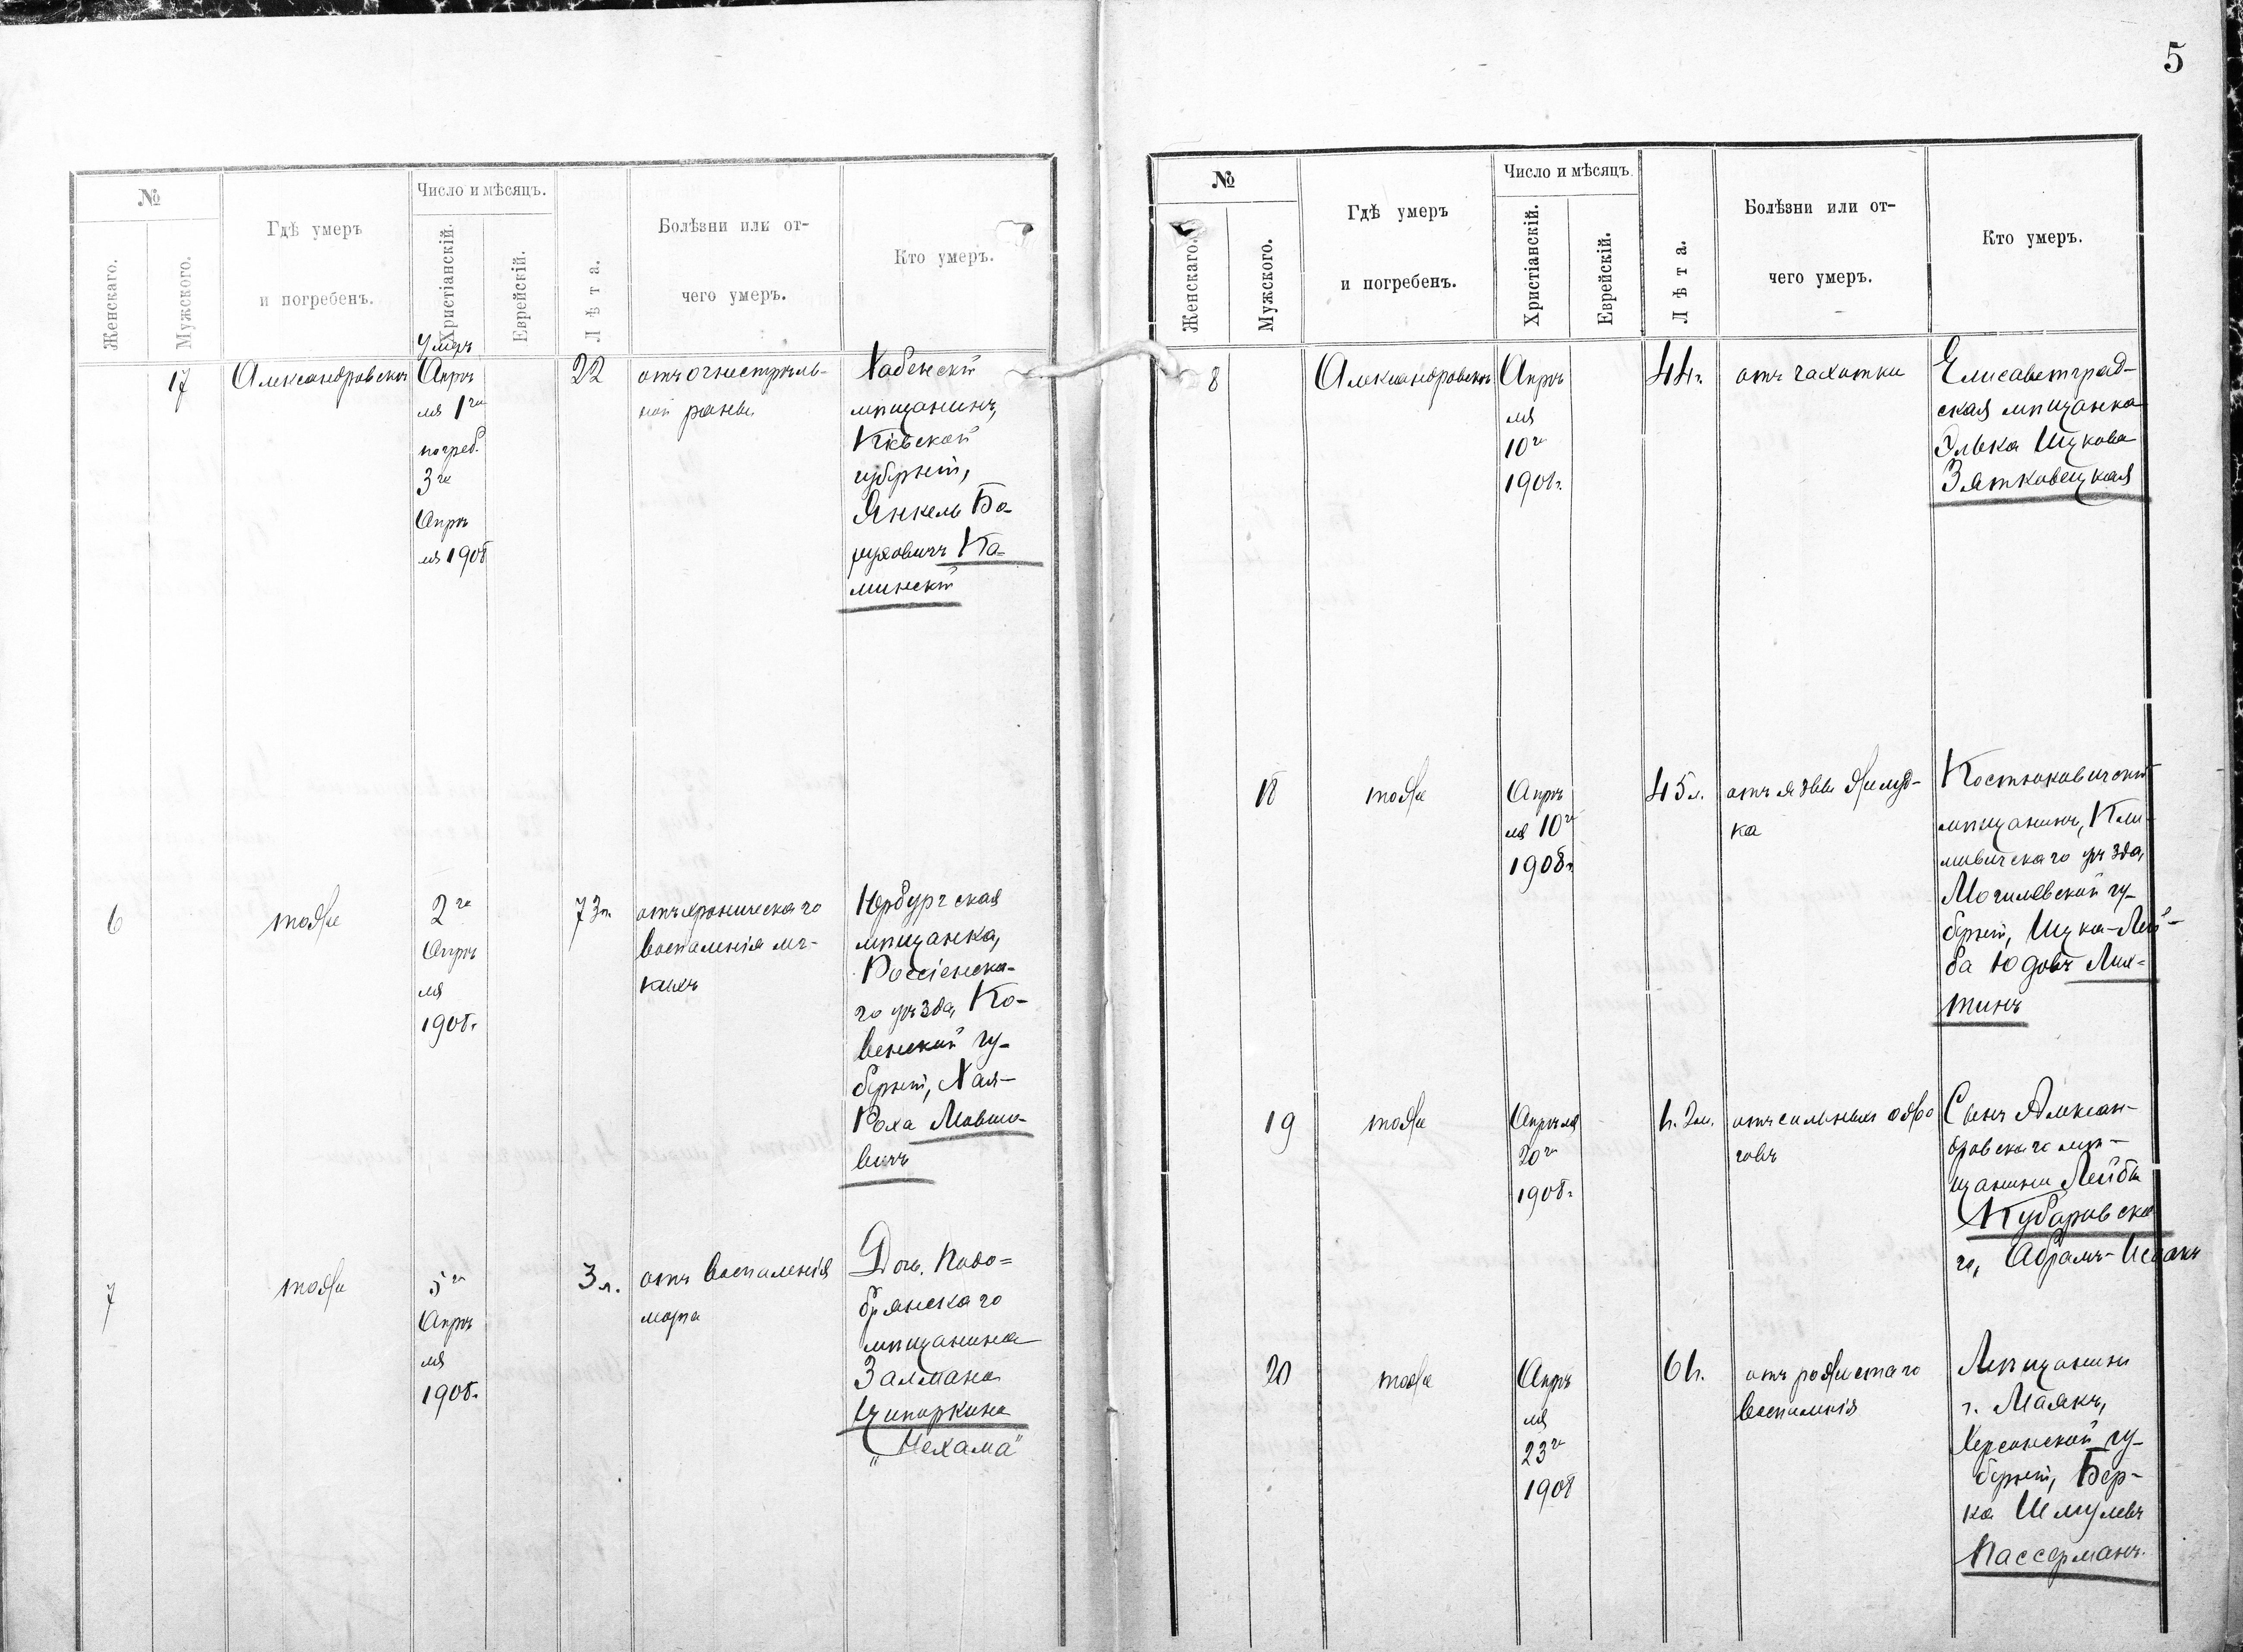 5
№
Число и мѣсяцъ.
Женскаго.
Мужского.
Гдѣ умеръ
и погребенъ.
Христіанскій.
Еврейскій.
Лѣта.
Болѣзни или от-
чего умеръ.
Кто умеръ.
17
Александровскъ
Умеръ
Апрѣ
ля 1го
погреб.
3го
Апрѣ
ля 1908
22
отъ огнестрѣль-
ной раны
Хабенскій
мѣщанинъ,
Кіевской
губерніи,
Янкель Бо-
руховичъ Ка-
минскій
6
тоже
2го
Апрѣ
ля
1908г.
73л.
отъ хроническаго
воспаленія лег-
кихъ
Юрбургская
мѣщанка,
Россіенска-
го уѣзда, Ко-
венской гу-
берніи, Хая-
Роха Мовшо-
вичъ
7
тоже
5го
Апрѣ
ля
1908г.
3 л.
отъ воспаленія
мозга
Дочь Ново-
брянскаго
мѣщанина
Залмана
Ципоркина
„Нехама"
№
Число и мѣсяцъ.
Женскаго.
Мужского.
Гдѣ умеръ
и погребенъ.
Христіанскій.
Еврейскій.
Лѣта.
Болѣзни или от-
чего умеръ.
Кто умеръ.
8
Александровскъ
Апрѣ
ля
10го
1908г.
44г.
отъ чахотки
Елисаветград-
ская мѣщанка
Элька Ицкова
Зятковецкая
18
тоже
Апрѣ
ля 10го
1908г.
45л.
отъ язвы желуд-
ка
Костюковичскій
мѣщанинъ, Кли-
мовичскаго уѣзда,
Могилевской гу-
берніи, Ицка-Лей-
ба Юдовъ Лих-
тинъ
19
тоже
Апрѣля
20го
1908г.
1г. 2м.
отъ сильныхъ ожо
говъ
Сынъ Алексан-
дровскаго мѣ-
щанина Лейбы
Кубаровска
го, Абрамъ-Исаакъ
20
тоже
Апрѣ
ля
23го
1908
61г.
отъ рожистаго
воспаленія
Мѣщанинъ
г. Маякъ,
Херсонской гу-
берніи, Бер-
ка Шмулевъ
Вассерманъ.